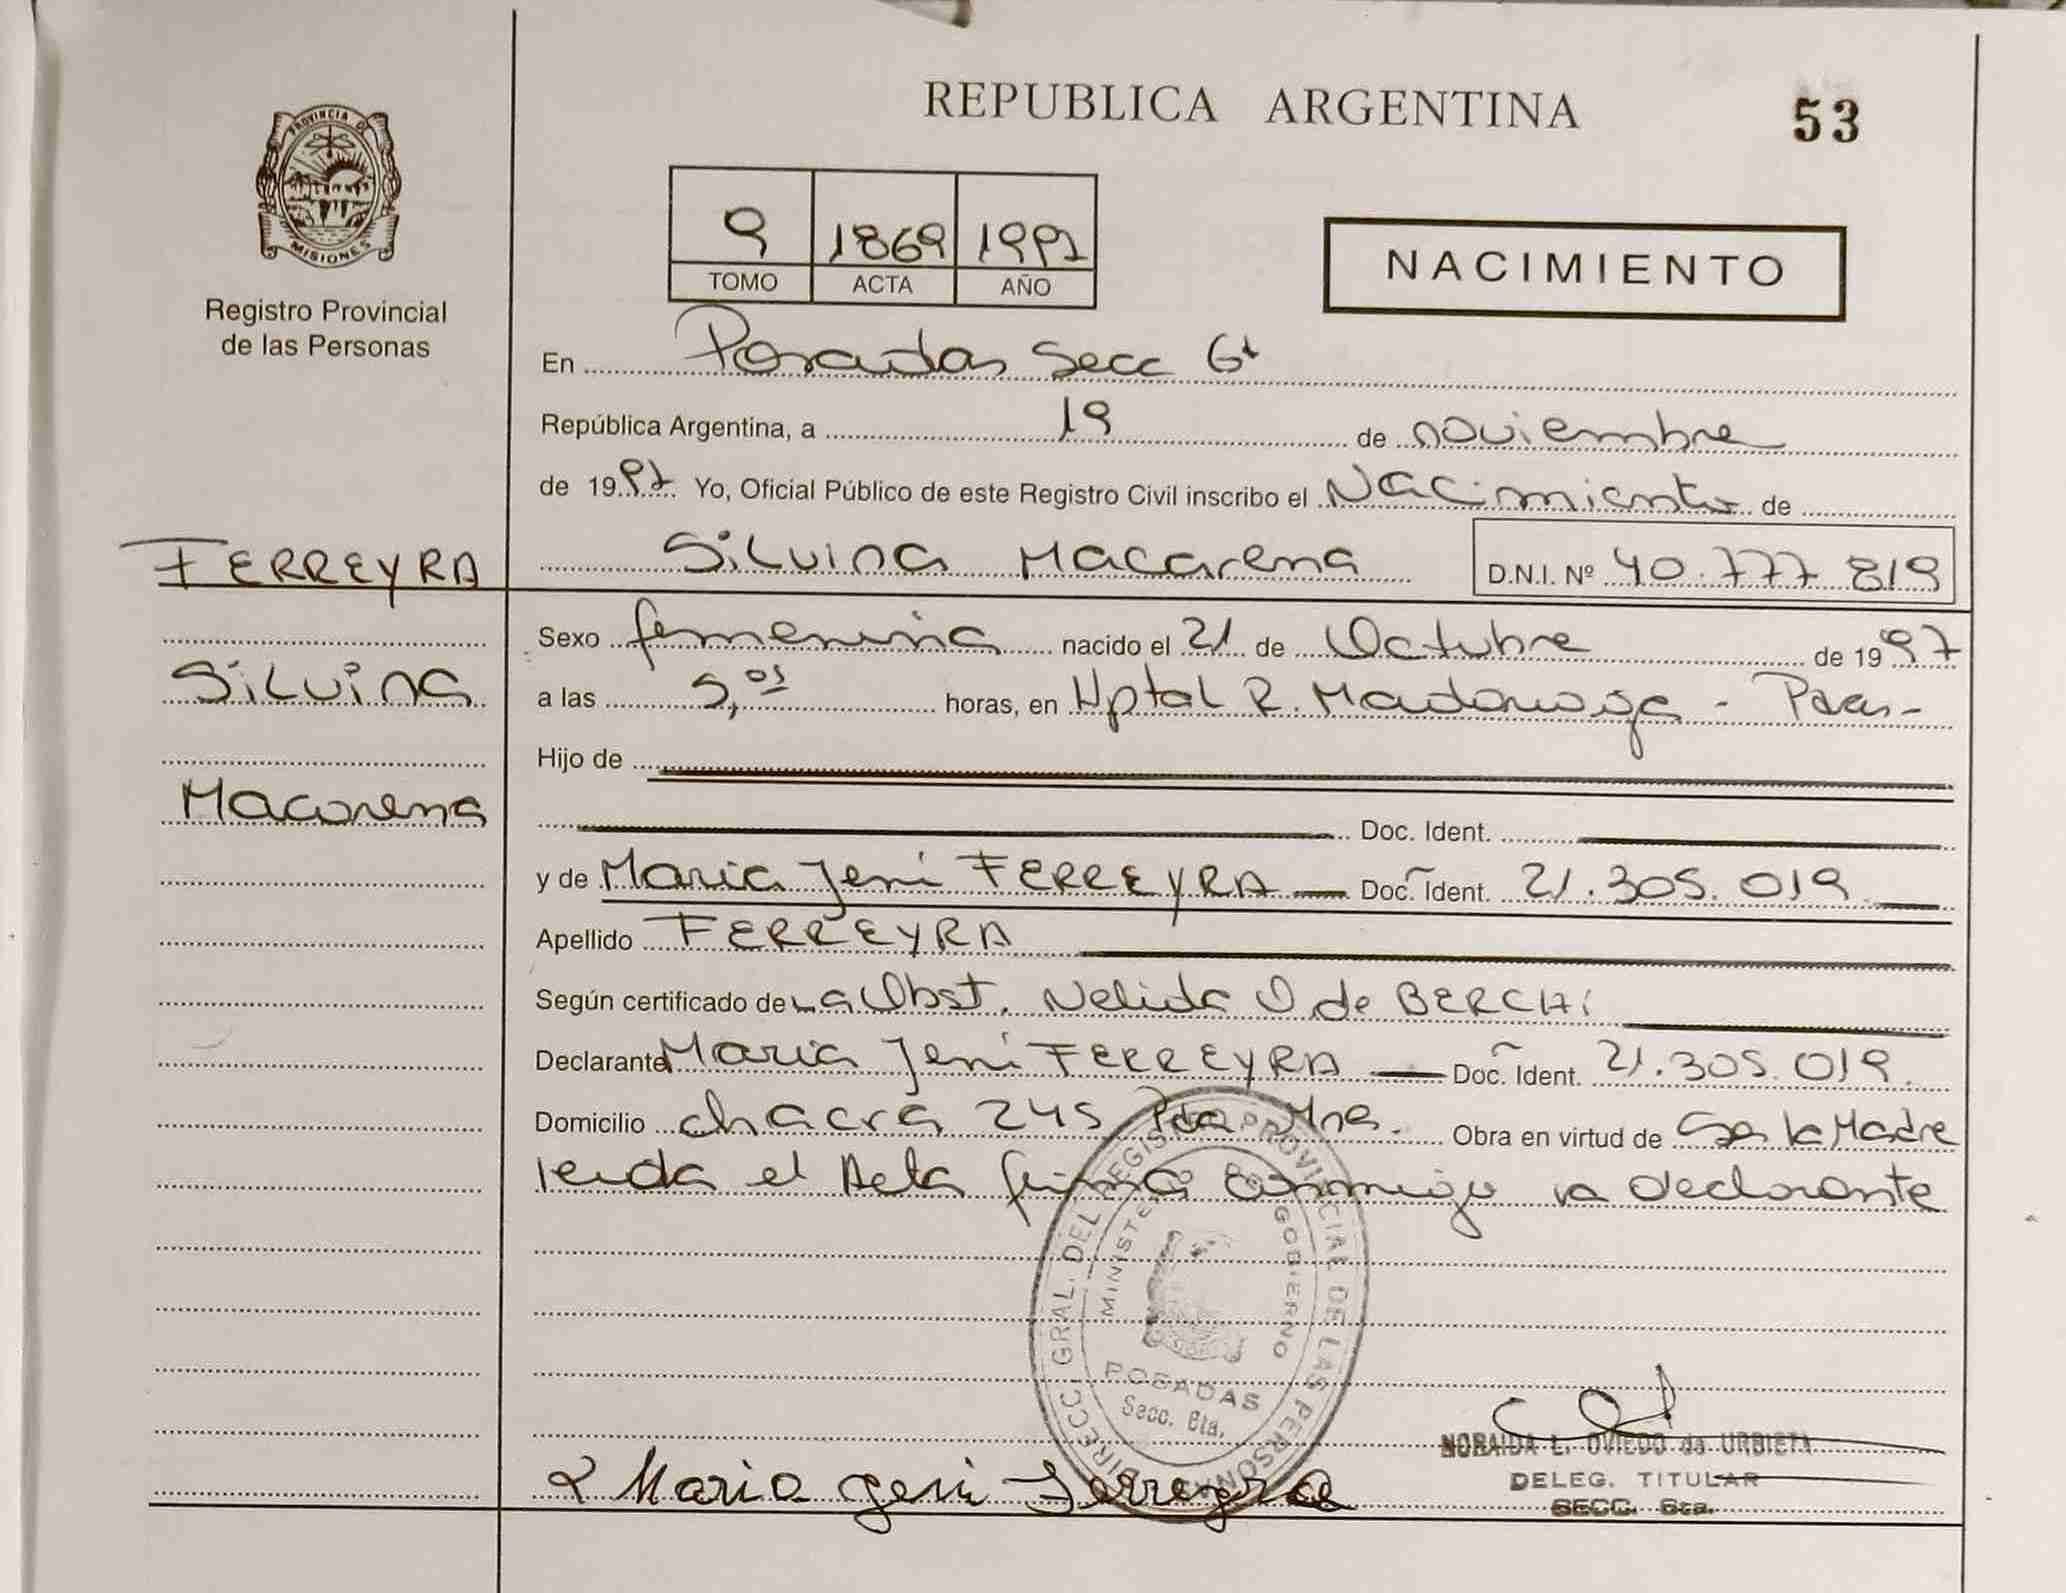 REPUBLICA ARGENTINA
53
PROVINCIA DE
MISIONES
Registro Provincial
de las Personas
9 1869 1997
TOMO ACTA AÑO
NACIMIENTO
En Posadas Secc 6ª
República Argentina, a 19 de noviembre
de 1997 Yo, Oficial Público de este Registro Civil inscribo el Nacimiento de
FERREYRA
Silvina
Macarena
Silvina Macarena D.N.I. Nº 40.777.819
Sexo femenina nacido el 21 de Octubre de 1997
a las 5,05 horas, en Hptal R. Madariaga - Pdas-
Hijo de
Doc. Ident.
y de Maria Jeni FERREYRA Doc. Ident. 21.305.019
Apellido FERREYRA
Según certificado de La Obst. Nelida O de BERCHI
Declarante Maria Jeni FERREYRA Doc. Ident. 21.305.019.
Domicilio chacra 245 Pdas Mnes. Obra en virtud de Ser la Madre
leida el Acta firma conmigo la declarante
DIRECC. GRAL. DEL REGISTRO PROVINCIAL DE LAS PERSONAS
MINISTERIO DE GOBIERNO
POSADAS
Secc. 6ta.
Maria Jeni Ferreyra
NORAIDA L. OVIEDO de URBIETA
DELEG. TITULAR
SECC. 6ta.